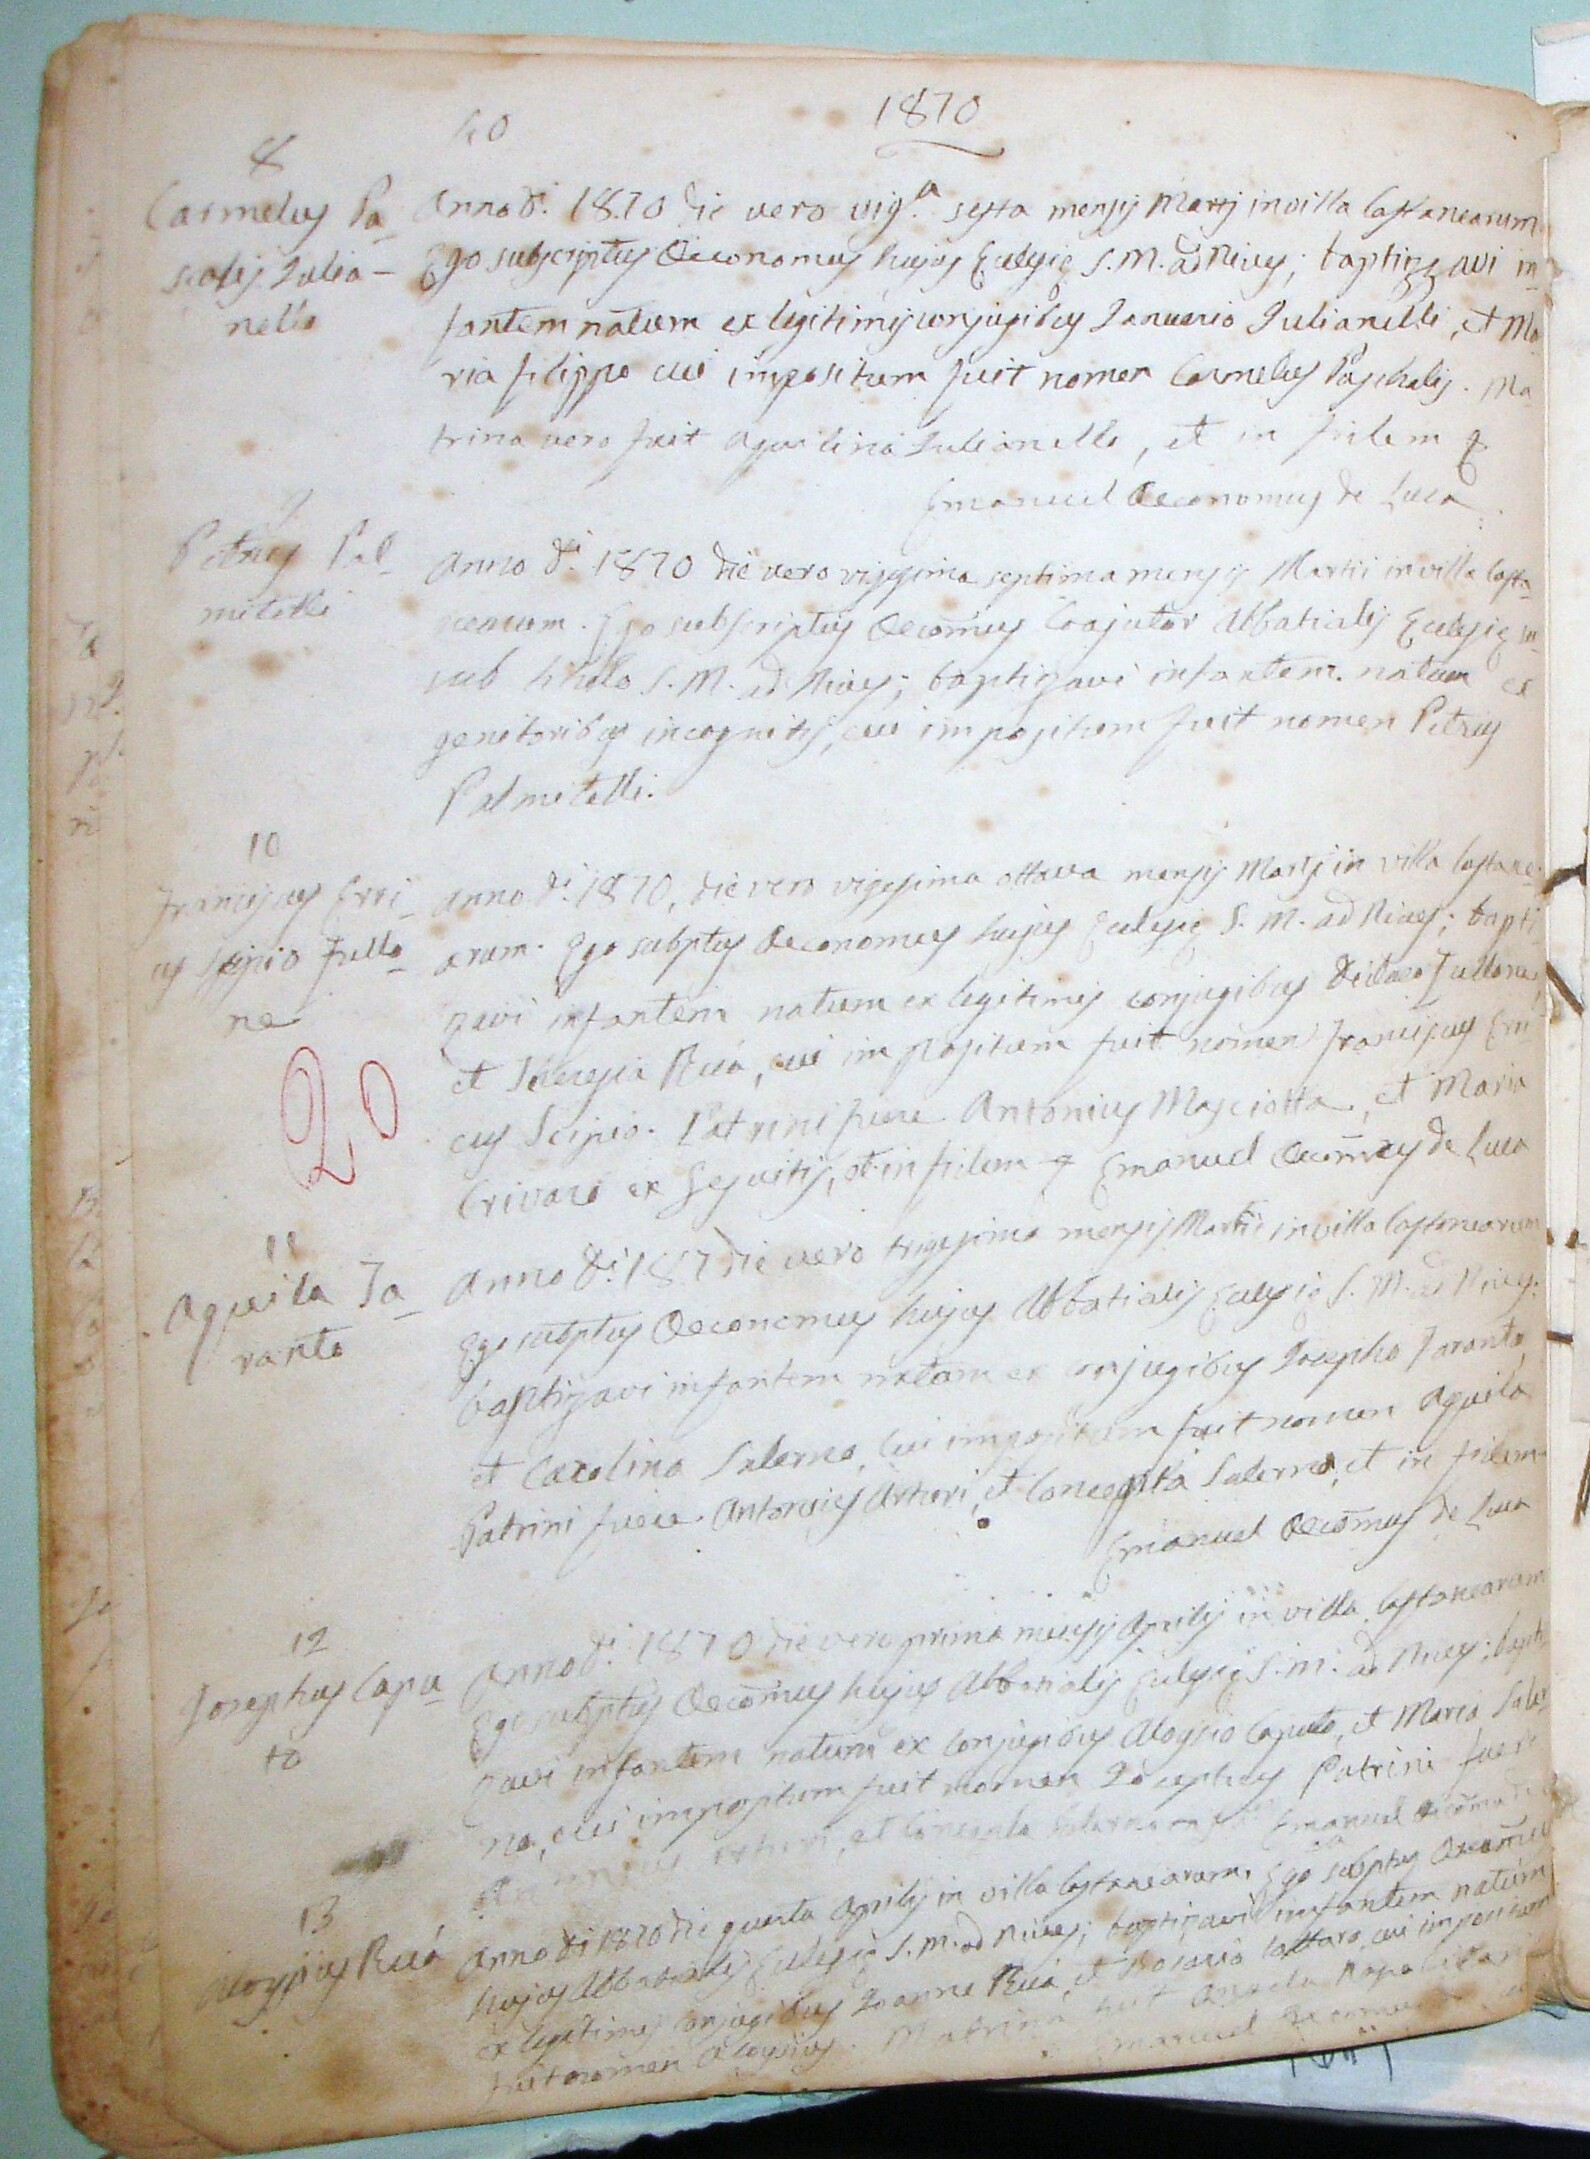 1870
40
8
Carmelus Pa-
scalis Julia-
nello
Anno d.i 1870 die vero vig.a sesta mensis Martj in villa Castanearum
Ego subscriptus Oeconomus hujus Eclesię S. M. ad Nives; baptizzavi in-
fantem natum ex legitimis conjugibus Januario Julianelli, et Ma-
ria Filippo cui impositum fuit nomen Carmelus Paschalis. Ma-
trina vero fuit Aquilina Julianello, et in fidem
Emanuel Oeconomus de Luca
9
Petrus Pal-
mitelli
Anno d.i 1870 die vero vigesima septima mensis Martii in villa Casta-
nearum. Ego subscriptus Oecōmus Coajutor Abbatialis Eclesię
sub titulo S. M. ad Nives; baptizavi infantem natum ex
genitoribus incognitis, cui impositum fuit nomen Petrus
Palmitelli.
10
Franciscus Erri-
cus Scipio Fullo-
ne
Anno d.i 1870, die vero vigesima ottava mensis Martj in villa Castane-
arum. Ego subptus Oeconomus hujus Eclesię S. M. ad Nives; bapti-
zavi infantem natum ex legitimis conjugibus Fullone,
et Theresia Ruà, cui impositum fuit nomen Franciscus Erri-
cus Scipio. Patrini fuere Antonius Masciotta, et Maria
Crivaro ex Gesuitis, et in fidem Emanuel Oecōmus de Luca
20
11
Aquila Ta-
ranto
Anno d.i 187 die vero trigesima mensis Martii in villa Castanearum
Ego subptus Oeconomus hujus Abbatialis Eclesię S. M. ad Nives:
baptizavi infantem natam ex conjugibus Josepho Taranto,
et Carolina Salerno, cui impositum fuit nomen Aquila
Patrini fuere Antonius Arturi, et Concepta Salerno, et in fidem
Emanuel Oecōmus de Luca
12
Josephus Capu-
to
Anno d.i 1870 die vero prima mensis Aprilis in villa Castanearum
Ego subptus Oecōmus hujus Abbatialis Eclesię S. M. ad Nives; bapti-
zavi infantem natum ex conjugibus Aloysio Caputo, et Maria Saler-
no, cui impositum fuit nomen Josephus Patrini fuere
et Concepta Salerno Emanuel Oecōmus de
13
Aloysius Ruà
Anno d.i 1870 die quarta Aprilis in villa Castanearum. Ego subptus Oecōmus
hujus Abbatialis Eclesię S. M. ad Nives; baptizavi infantem natum
ex legitimis conjugibus Joanne Ruà, et Rosaria Cattaro, cui impositum
fuit nomen Aloysius. Matrina fuit Angela
Emanuel Oeconomus